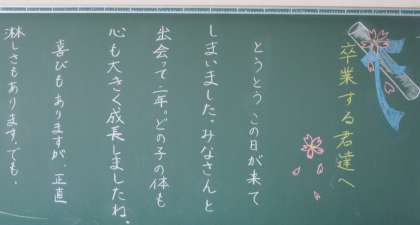 卒業する君達へ
とうとうこの日が来て
しまいました。みなさんと
出会って一年。どの子の体も
心も大きく成長しましたね。
喜びもありますが、正直
淋しさもあります。でも、